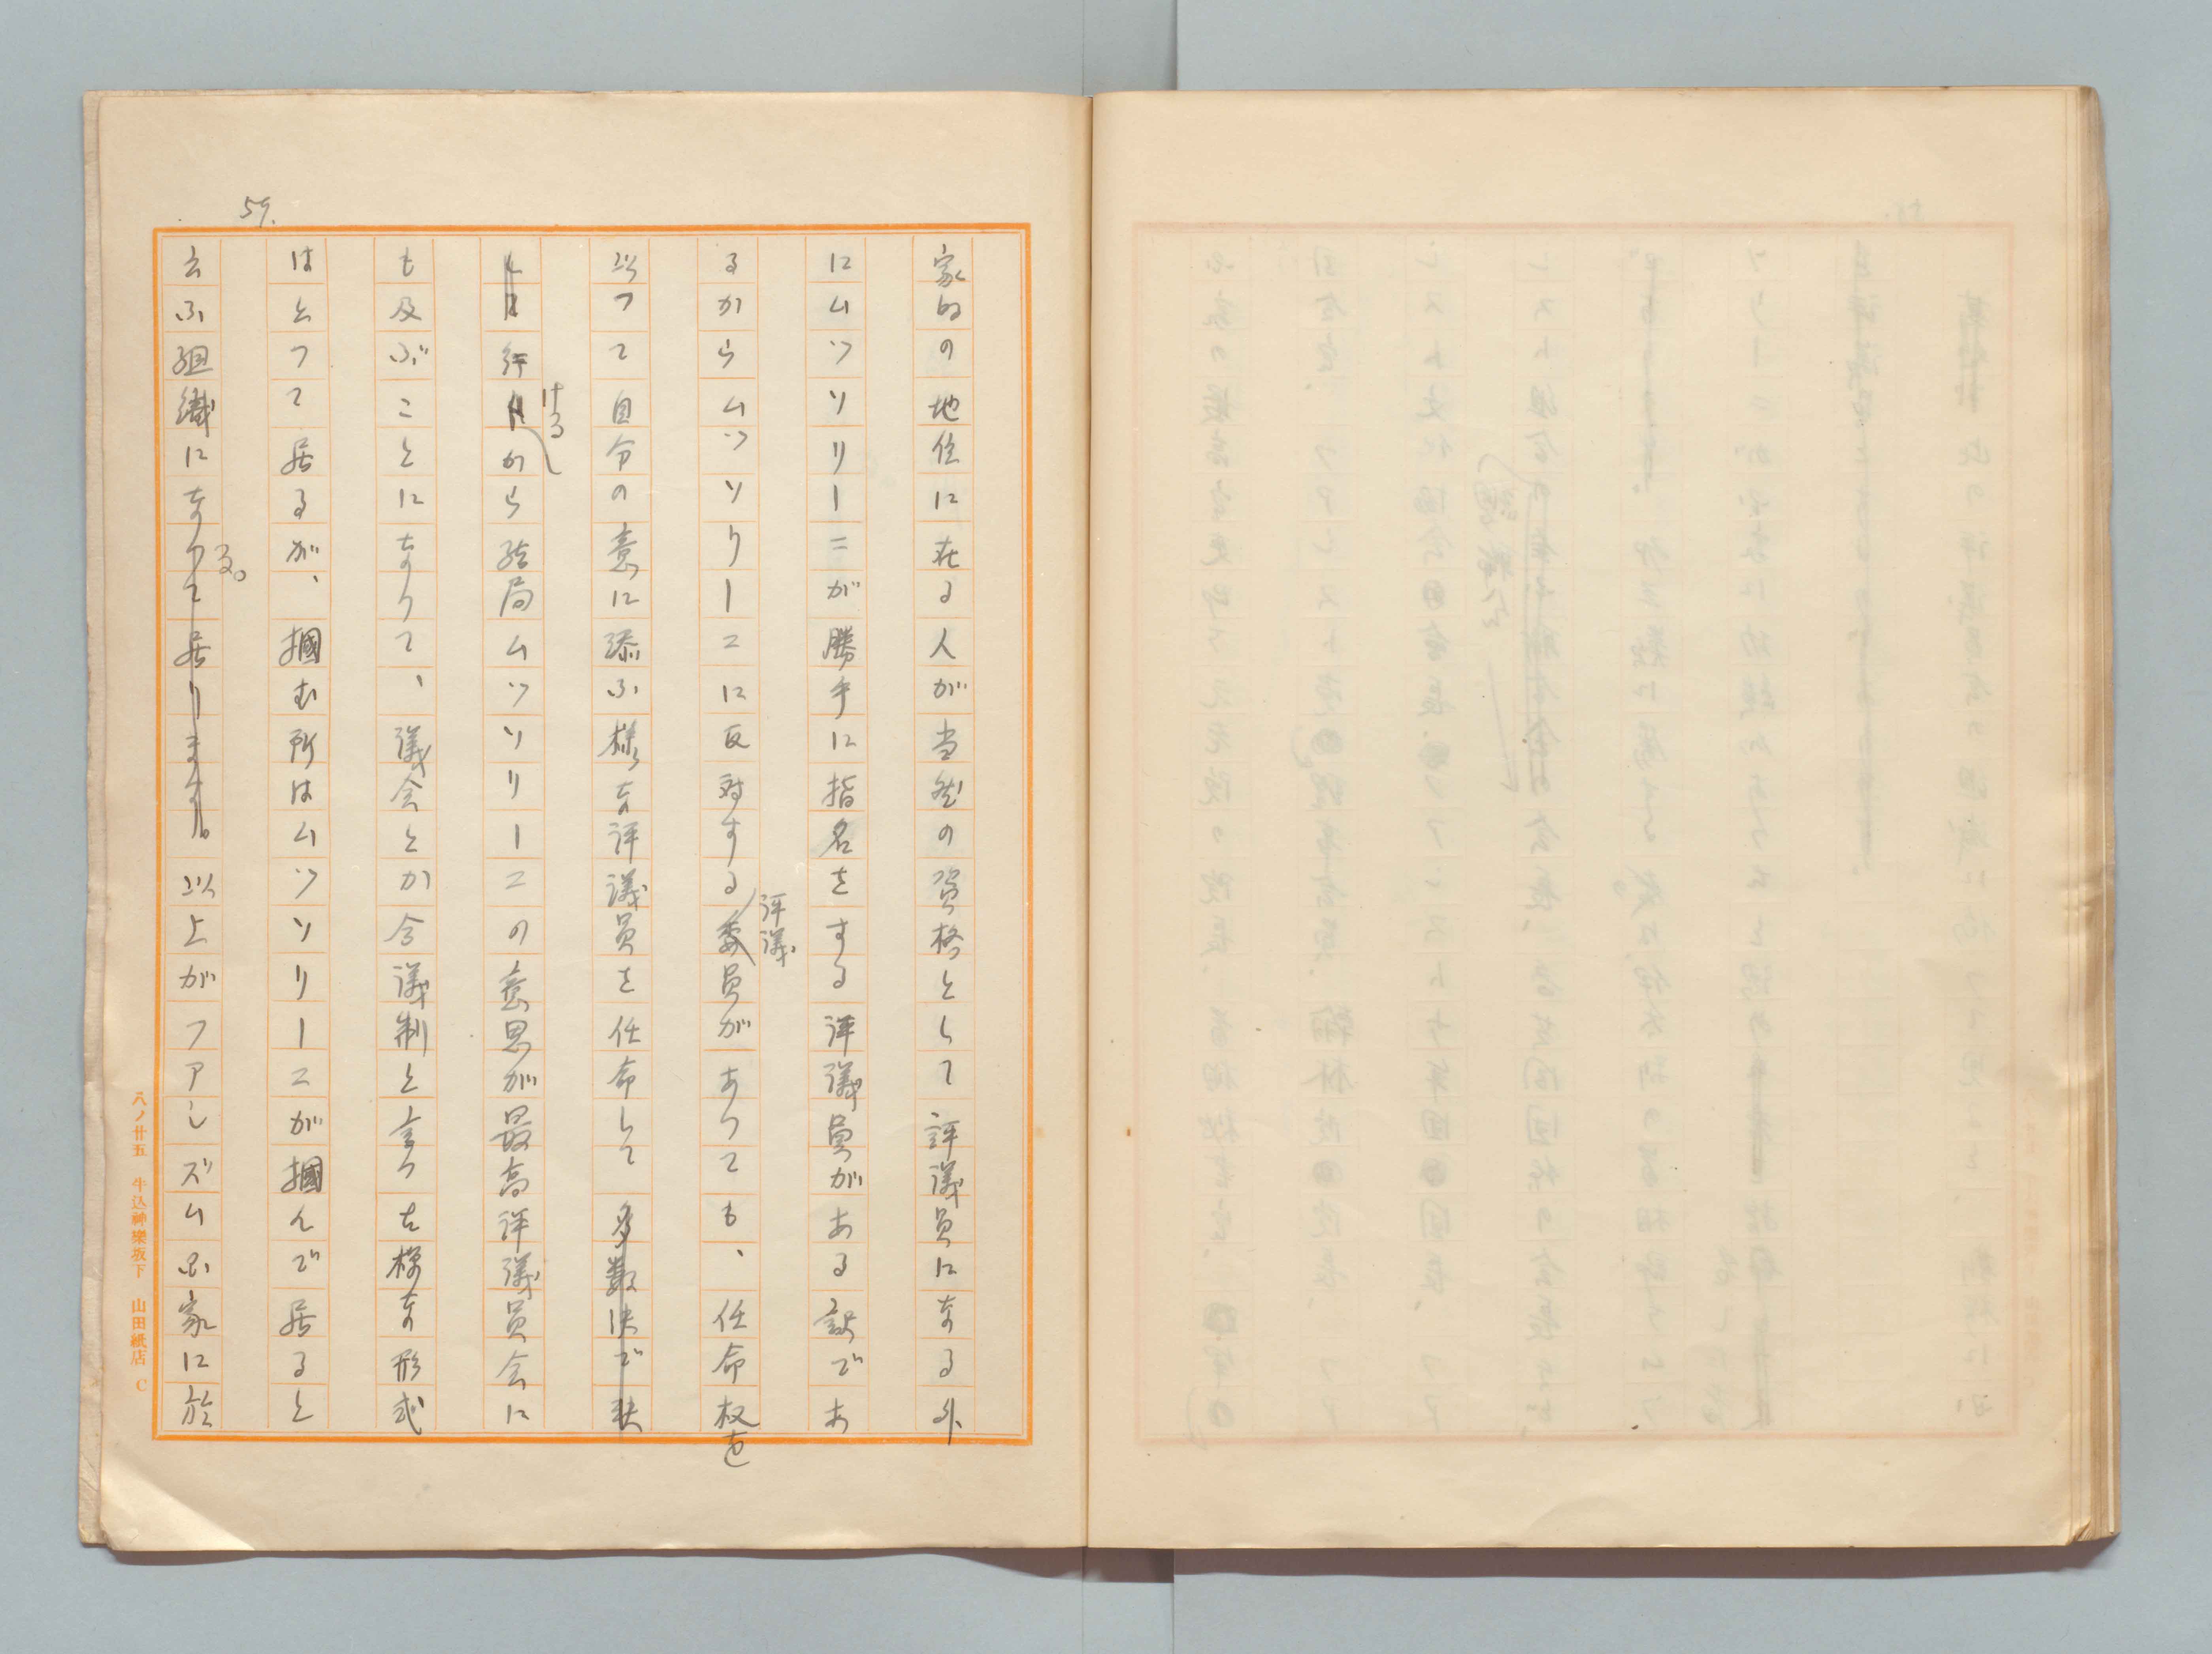 59.
家的の地位に在る人が当然の資格として評議員になる外
にムツソリーニが勝手に指名をする評議員がある訳であ
るからムツソリーニに反対する委員があつても、任命权を
評議
以つて自分の意に添ふ様な評議員を任命して多数決で決
行ける
から結局ムツソリーニの意思が最高評議員会に
も及ぶことになつて、議会とか合議制と言つた様な形式
はとつて居るが、掴む所はムツソリーニが掴んで居ると
る。
云ふ組織になつて居ります。以上がフアシズム国家に於
八ノ廿五 牛込神樂坂下 山田紙店 C